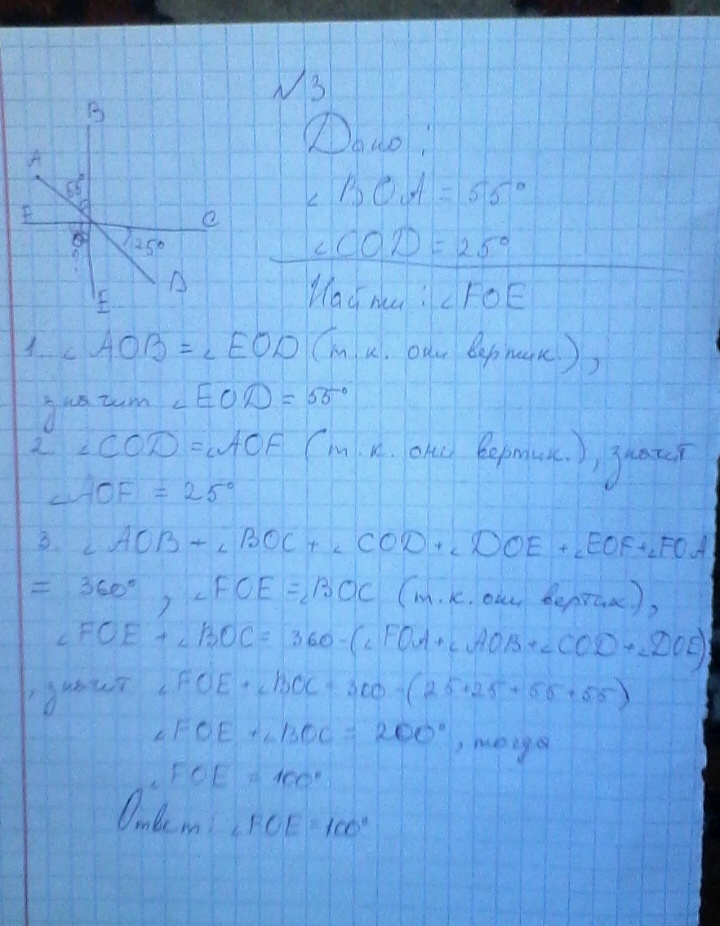 №3
Дано:
∠BOA = 55°
∠COD = 25°
Найти: ∠FOE
B
A
55°
F
C
25°
?
D
E
1. ∠AOB = ∠EOD (т.к. они вертик.),
значит ∠EOD = 55°
2. ∠COD = ∠AOF (т.к. они вертик.), значит
∠AOF = 25°
3. ∠AOB + ∠BOC + ∠COD + ∠DOE + ∠EOF + ∠FOA
= 360°, ∠FOE = ∠BOC (т.к. они вертик),
∠FOE + ∠BOC = 360 - (∠FOA + ∠AOB + ∠COD + ∠DOE)
, значит ∠FOE + ∠BOC = 360 - (25 + 25 + 55 + 55)
∠FOE + ∠BOC = 200°, тогда
∠FOE = 100°
Ответ: ∠FOE = 100°